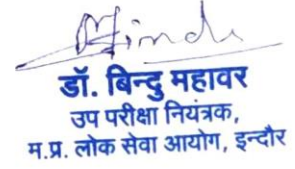 डॉ. बिन्दु महावर
उप परीक्षा नियंत्रक,
म.प्र. लोक सेवा आयोग, इन्दौर